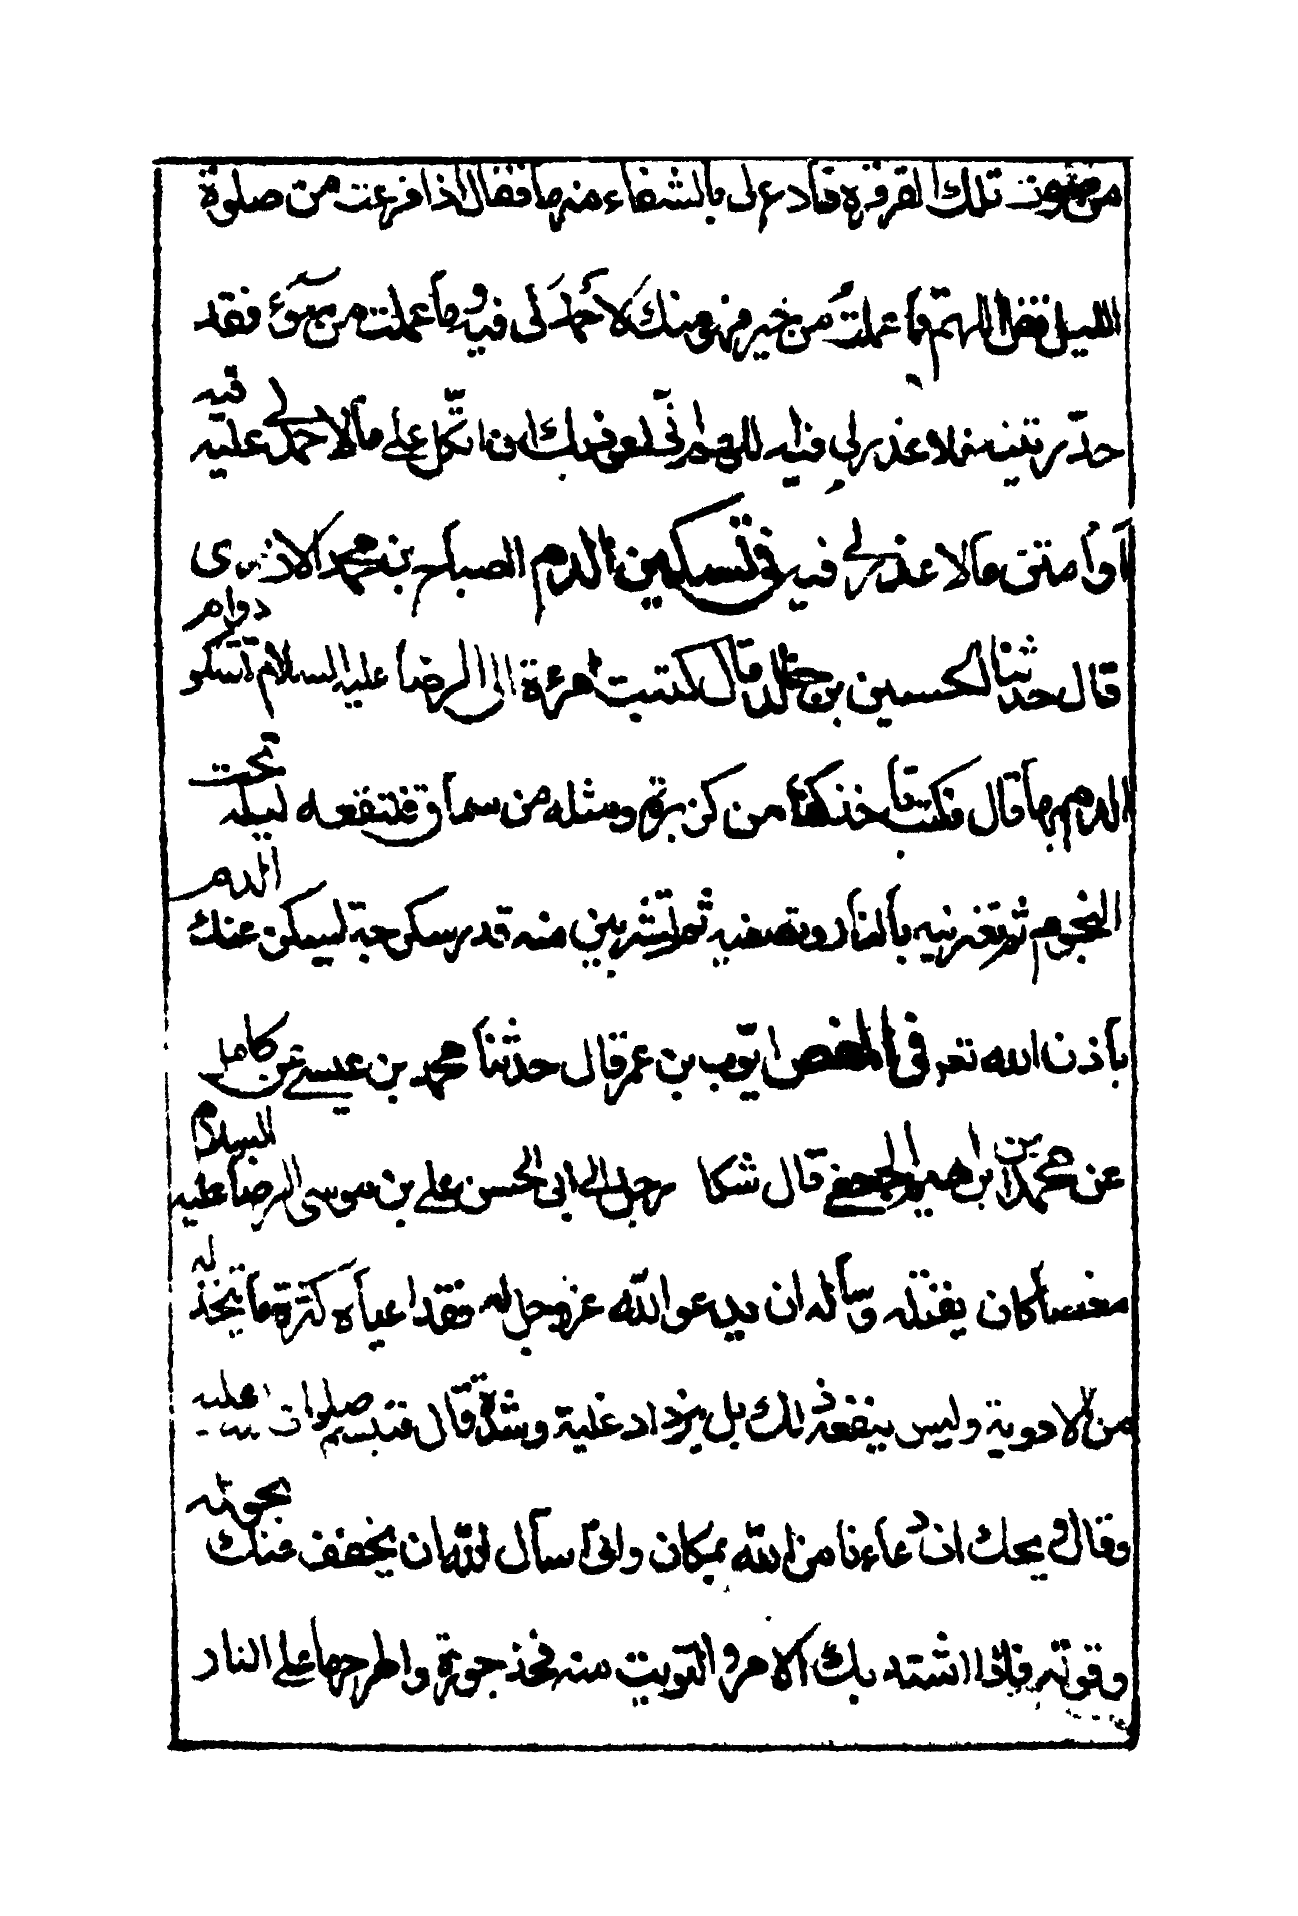 من صوت تلك القرقرة فادع لى بالشفاء منها فقال اذا فرغت من صلوة
الليل فقل اللهم ما عملت من خير فهو منك لا حمد لى فيه وما عملت من سوء فقد
حذرتنيه فلا عذر لى فيه اللهم انى اعوذ بك ان اتكل على ما لا حمد لى عليه فيه
او امن ما لا عذر لى فيه فى تسكين الدم الصباح بن محمد الازدى
قال حدثنا الحسين بن خالد قال كتبت امرءة الى الرضا عليه السلام تشكو دوام
الدم بها قال فكتب خذ كفا من كزبرة ومثله من سماق فتنقعه ليلة تحت
النجوم ثم تغزنيه بالنار وتصفيه ثم تشربين منه قدر سكرجة ليسكن عنك الدم
باذن الله تعه فى المغص ايوب بن عمر قال حدثنا محمد بن عيسى عن كامل
عن محمد بن ابرهيم الجعفى قال شكا رجل الى ابى الحسن على بن موسى الرضا عليه السلام
مغصا كان يقتله وسأله ان يدعو الله عز وجل له فقد اعياه كثرة ما يتخذ له
من الادوية وليس ينفعه ذلك بل يزداد علية وشدة قال فتبسم صلوات عليه
وقال ويحك ان دعاءنا من الله بمكان وانى اسأل الله ان يخفف عنك بحوله
وقوته فاذا اشتد بك الامر والتويت منه فخذ جوزة واطرحها على النار